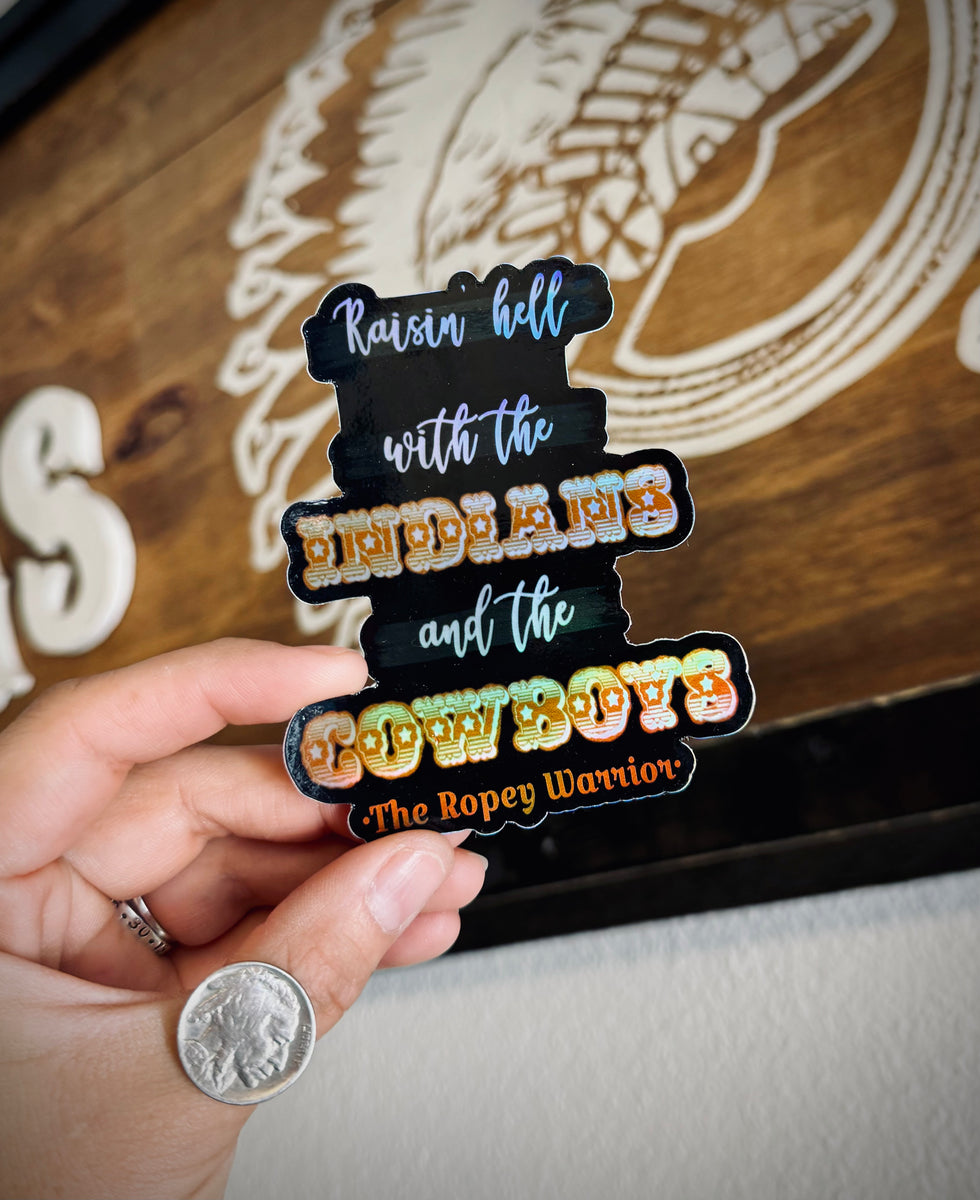 Raisin' hell
with the
INDIANS
and the
COWBOYS
•The Ropey Warrior•
S
30
LIBERTY